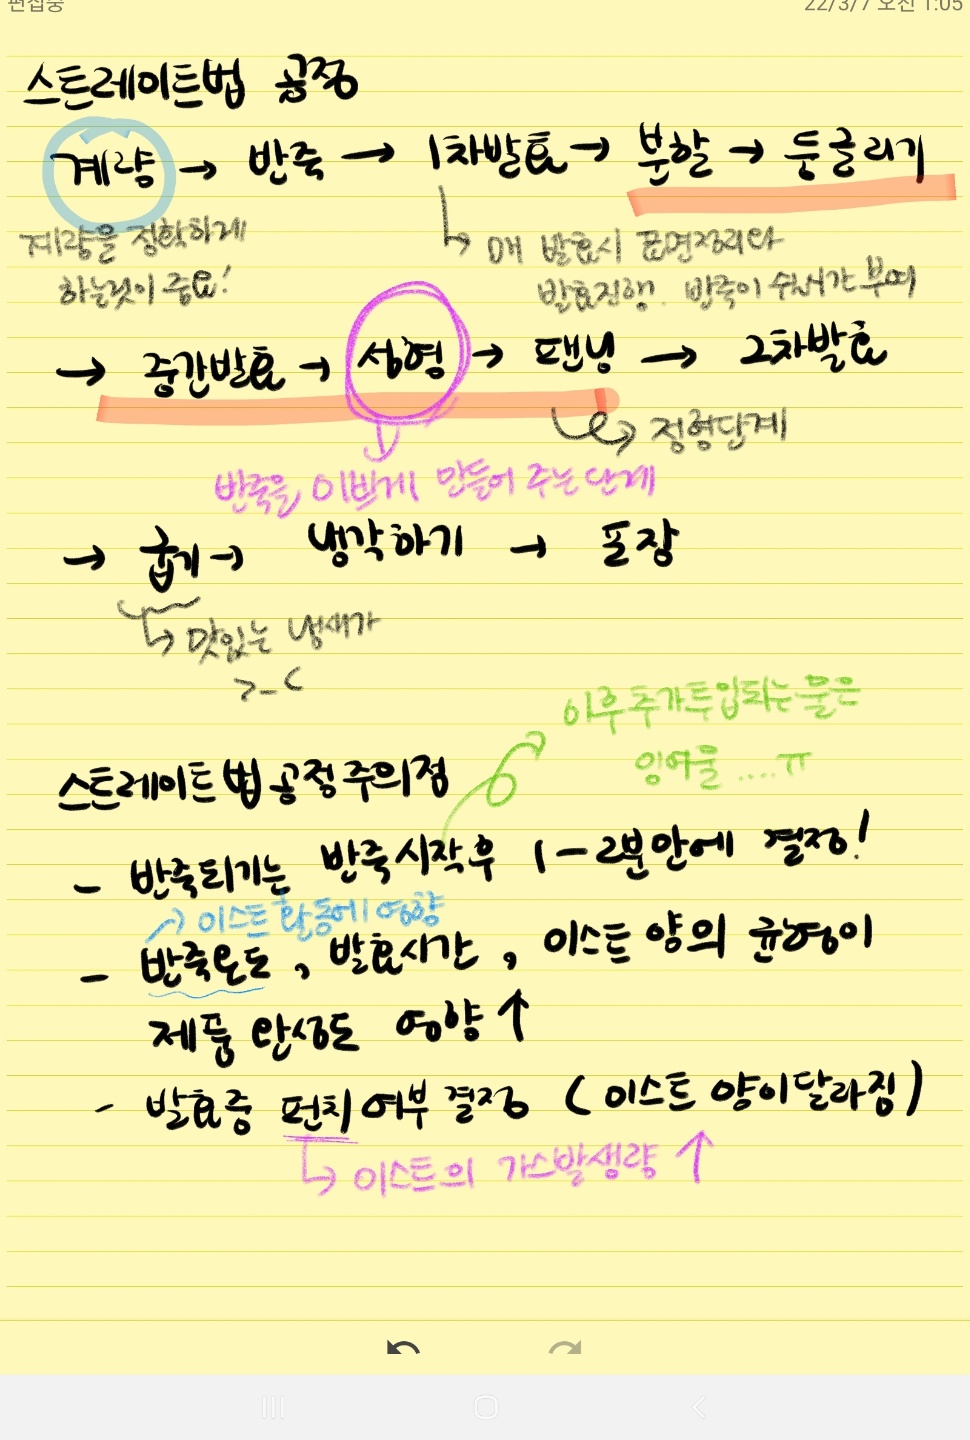 편집중
22/3/7 오전 1:05
스트레이트법 공정
계량 → 반죽 → 1차발효 → 분할 → 둥글리기
계량을 정확하게
하는것이 중요!
↳ 매 발효시 표면정리와
발효진행. 반죽이 쉬는시간 부여
→ 중간발효 → 성형 → 팬닝 → 2차발효
정형단계
반죽을 이쁘게 만들어 주는 단계
→ 굽기 → 냉각하기 → 포장
↳ 맛있는 냄새가
>-<
이후 추가투입되는 물은
잉여물 ....ㅠ
스트레이트법 공정 주의점
- 반죽되기는 반죽시작후 1-2분안에 결정!
→ 이스트 활동에 영향
- 반죽온도, 발효시간, 이스트 양의 균형이
제품 완성도 영향↑
- 발효중 펀치 여부 결정 (이스트 양이달라짐)
↳ 이스트의 가스발생량 ↑